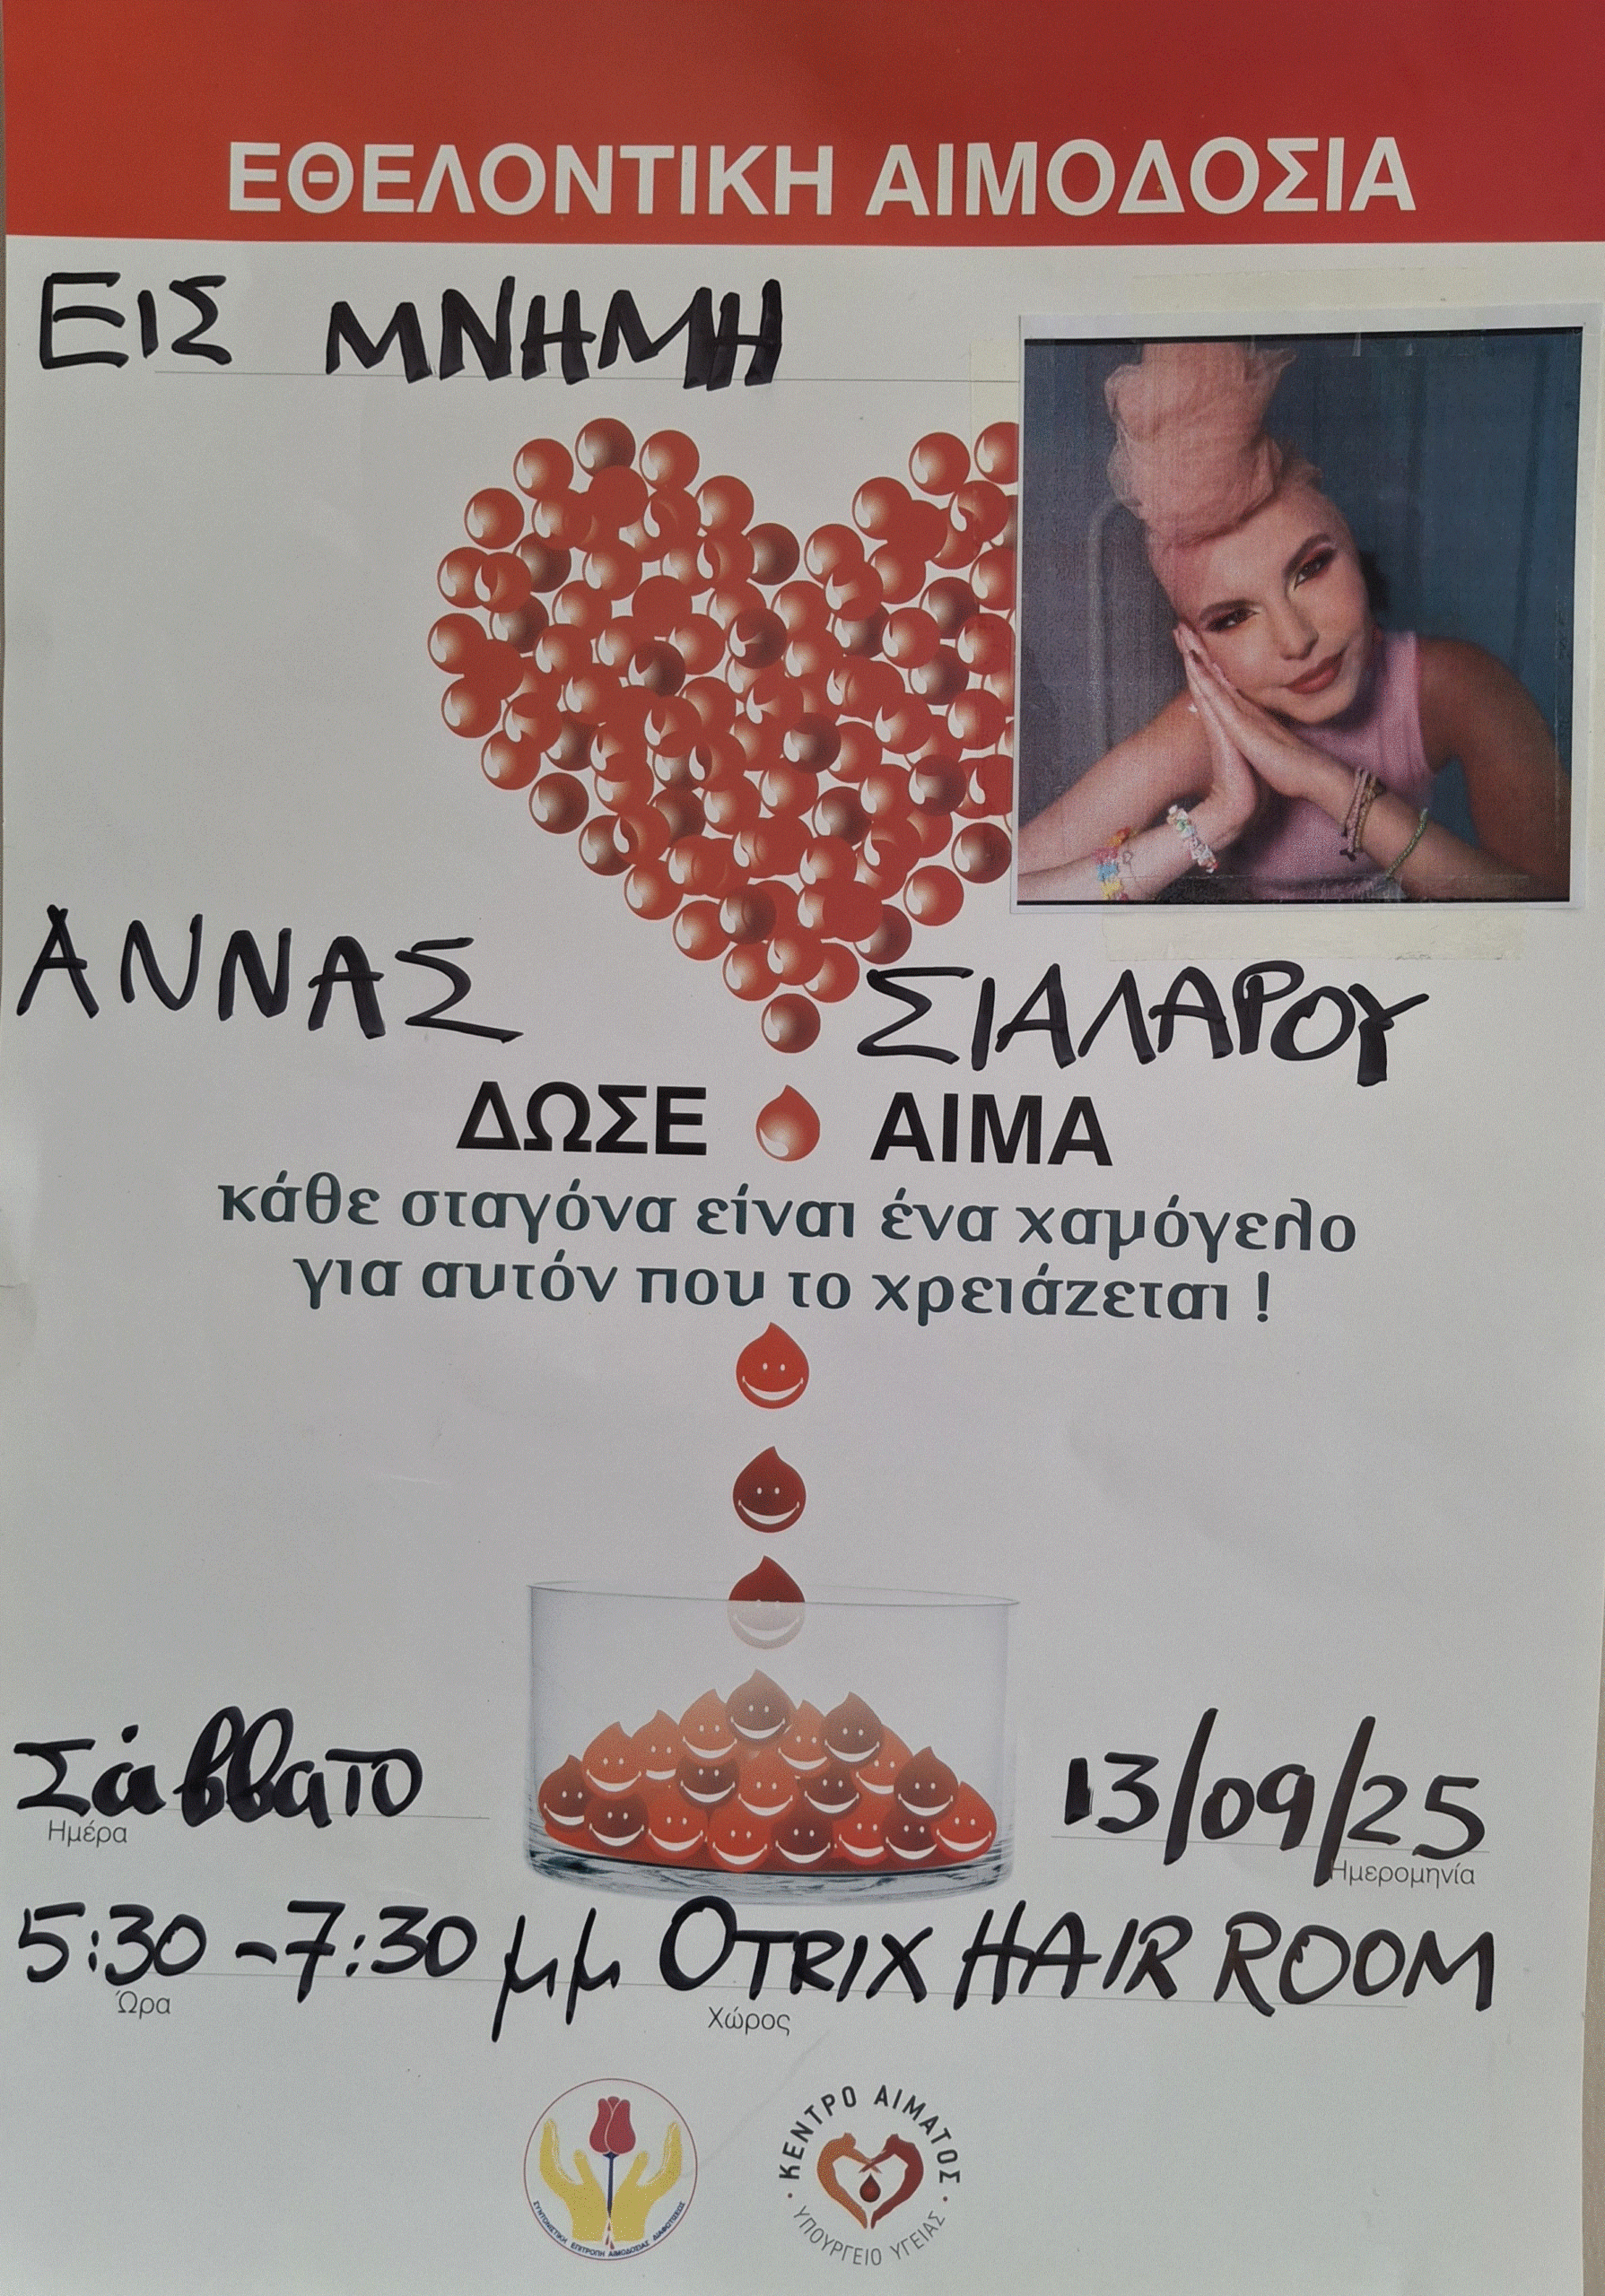 ΕΘΕΛΟΝΤΙΚΗ ΑΙΜΟΔΟΣΙΑ
ΕΙΣ ΜΝΗΜΗ
ΑΝΝΑΣ ΣΙΑΛΑΡΟΥ
ΔΩΣΕ ΑΙΜΑ
κάθε σταγόνα είναι ένα χαμόγελο
για αυτόν που το χρειάζεται !
Σάββατο 13/09/25
Ημέρα Ημερομηνία
5:30-7:30 μμ OTRIX HAIR ROOM
Ώρα Χώρος
ΣΥΝΤΟΝΙΣΤΙΚΗ ΕΠΙΤΡΟΠΗ ΑΙΜΟΔΟΣΙΑΣ ΔΙΑΦΩΤΙΣΕΩΣ
ΚΕΝΤΡΟ ΑΙΜΑΤΟΣ
ΥΠΟΥΡΓΕΙΟ ΥΓΕΙΑΣ